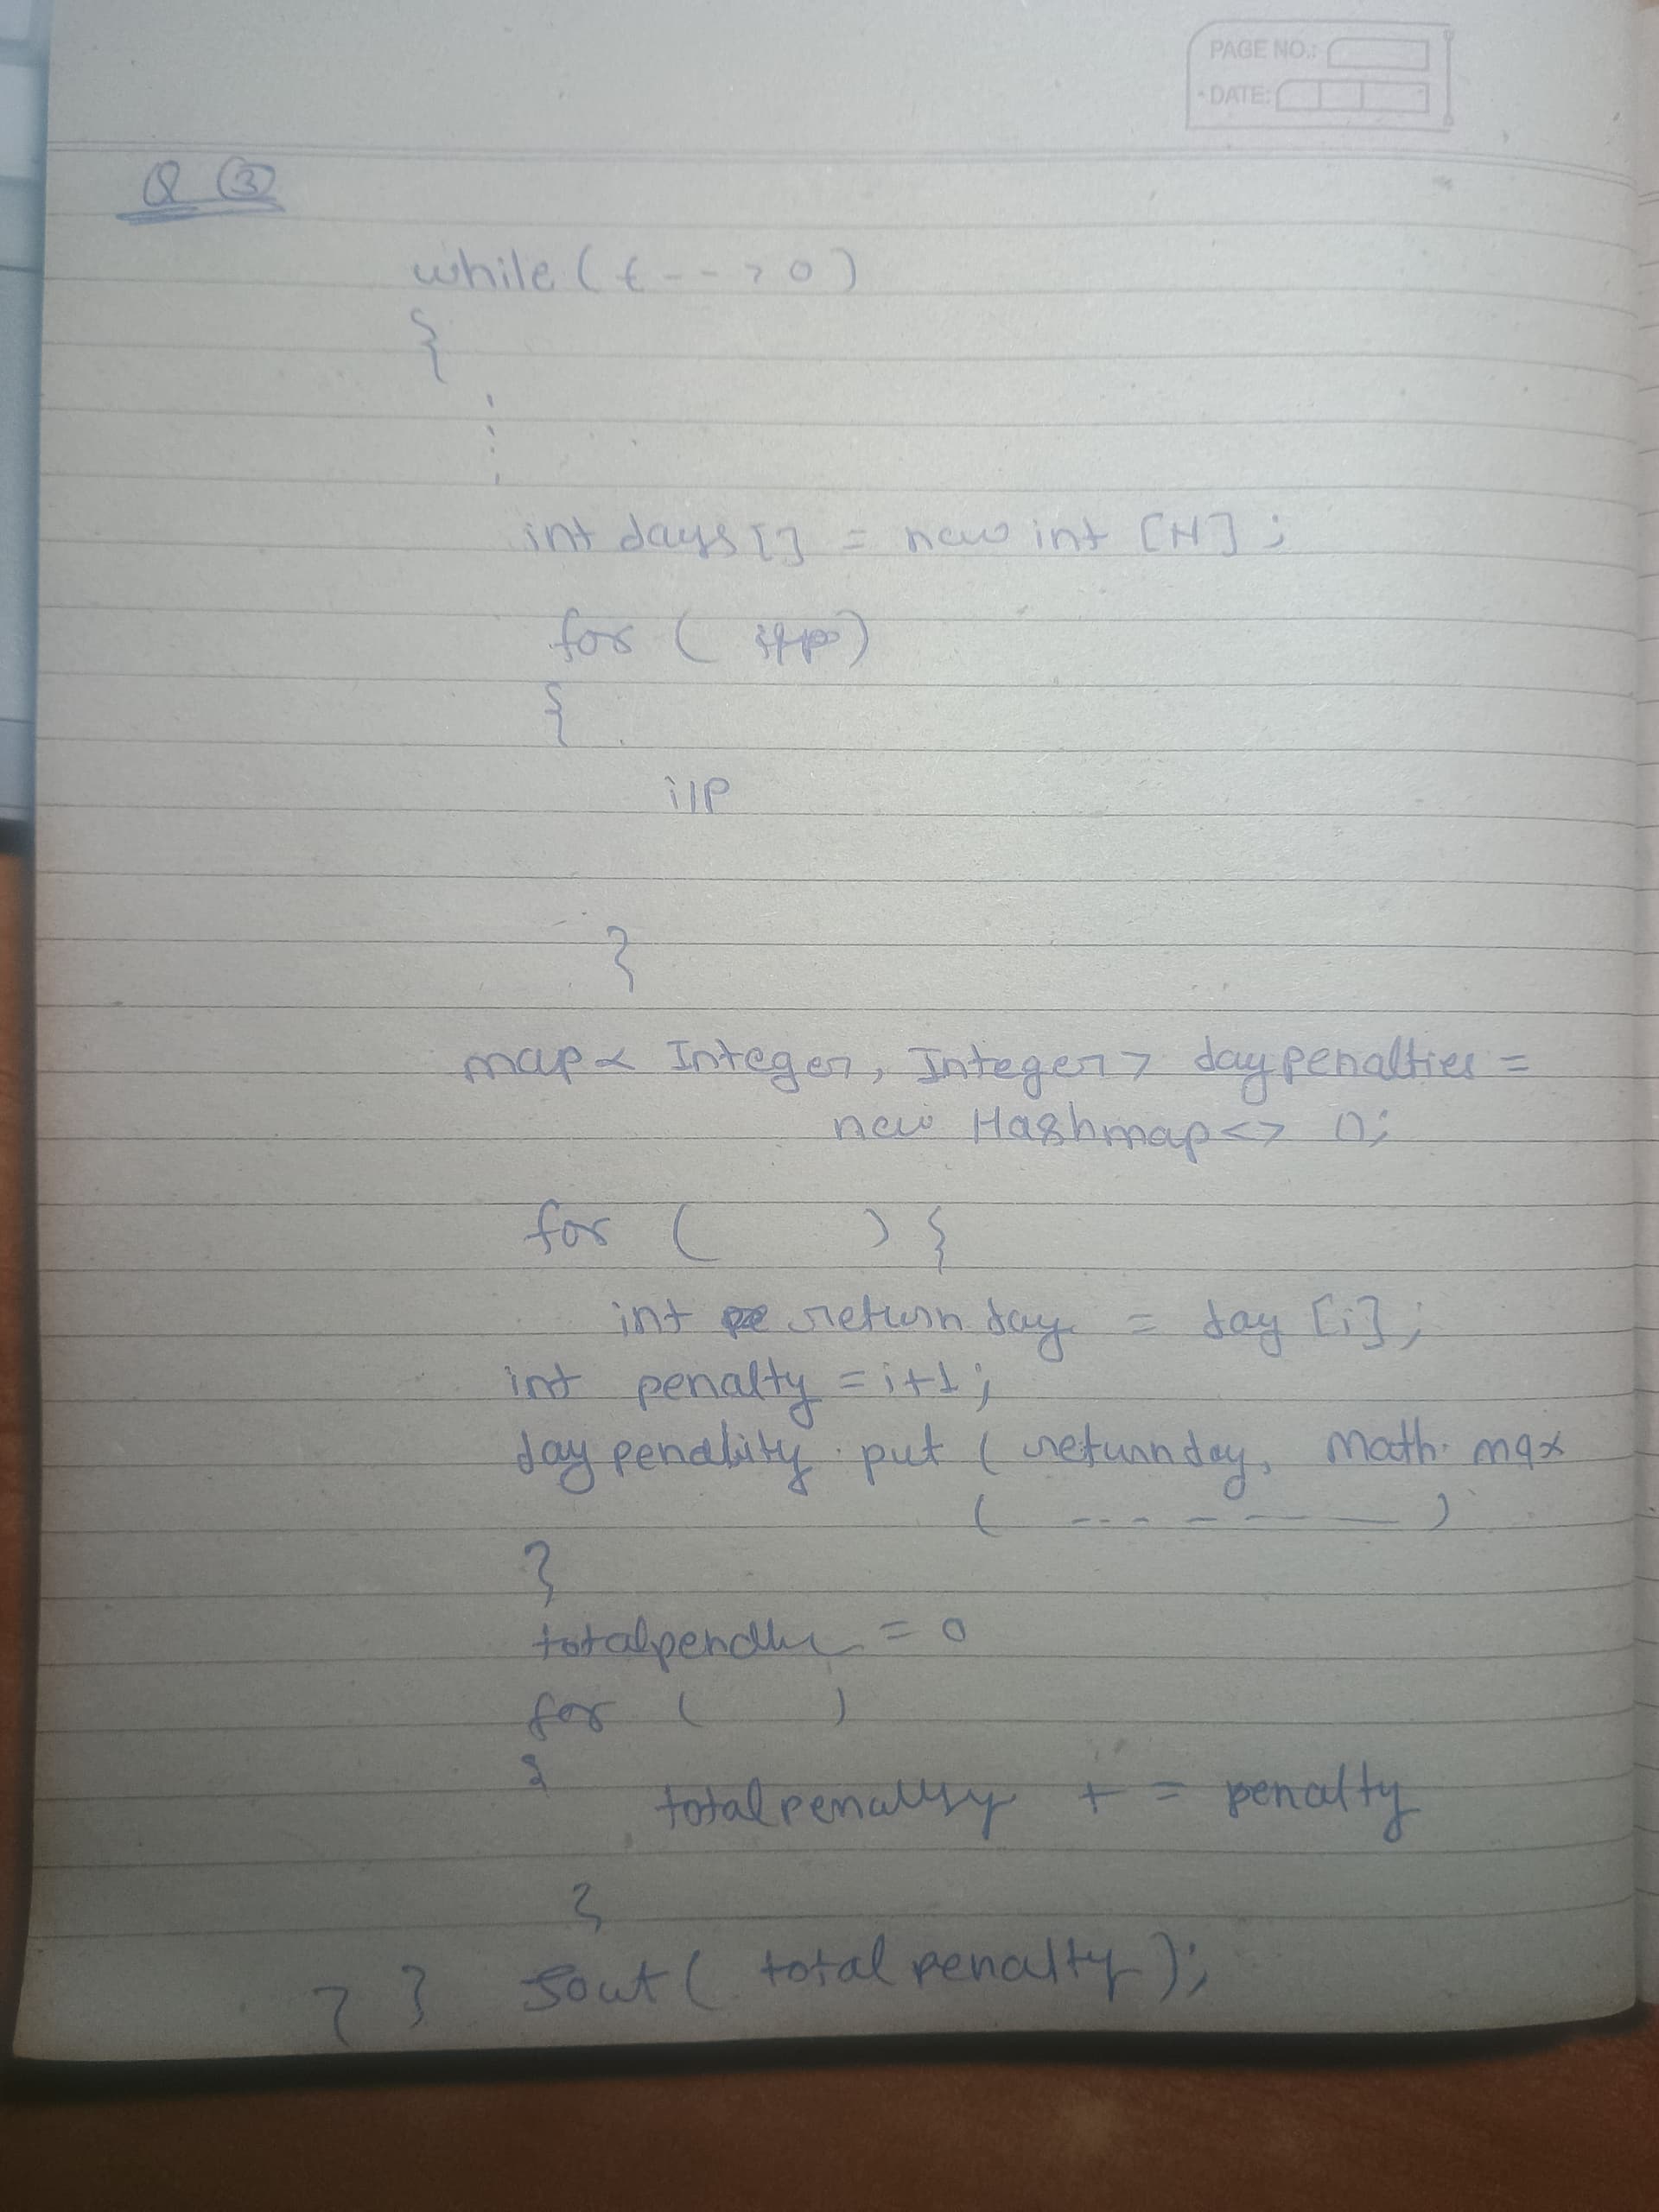 PAGE NO.:
DATE:
Q (3)
while ( t - - > 0 )
{
int days [] = new int [N] ;
for ( )
{
i/p
}
map < Integer, Integer > daypenalties =
new Hashmap <> ();
for ( ) {
int returnday = day [i] ;
int penalty = i+1 ;
day penality . put ( returnday, Math. max
( - - - - - - )
}
= 0
for ( )
{
totalpenalty + = penalty
}
} } Sout ( total penalty ) ;